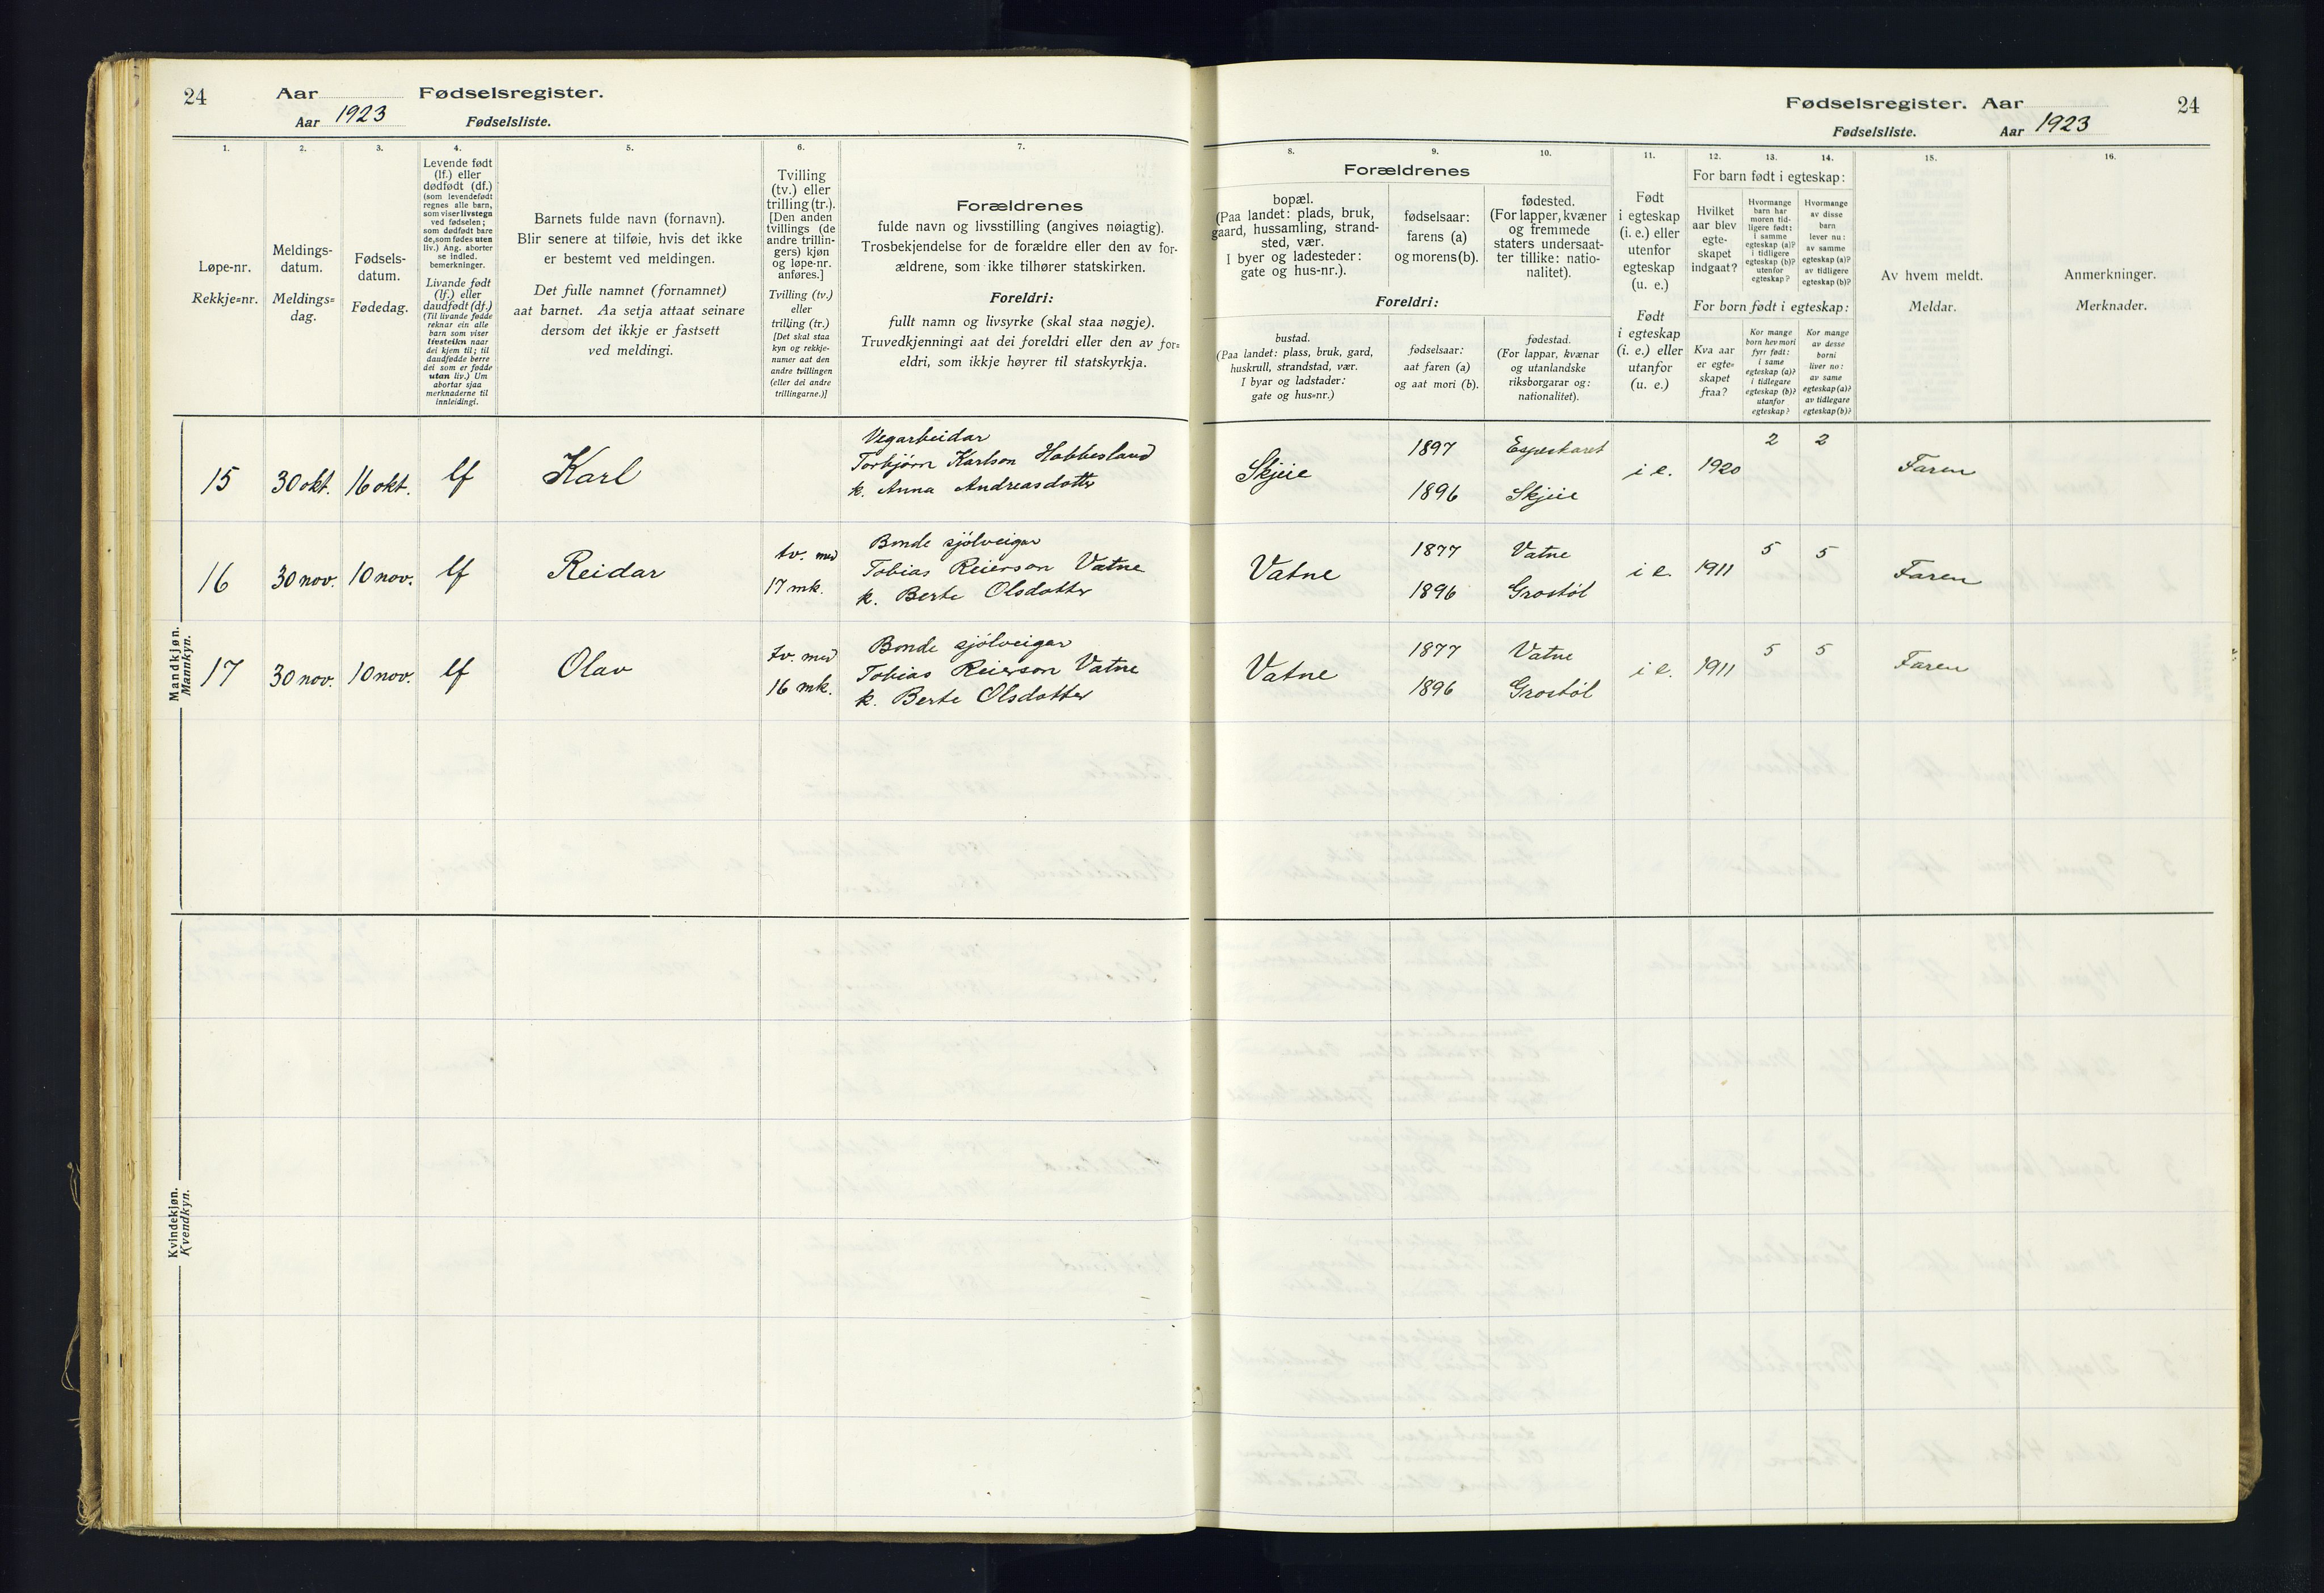 24
Aar
Fødselsregister.
Aar 1923
Fødselsliste.
1.
2.
3.
4.
5.
6.
7.
Løpe-nr.
Rekkje=nr.
Meldings-
datum.
Meldings=
dag.
Fødsels-
datum.
Fødedag.
Levende født
(lf.) eller
dødfødt (df.)
(som levendefødt
regnes alle barn,
som viser livstegn
ved fødselen;
som dødfødt bare
de, som fødes uten
liv.) Ang. aborter
se indled.
bemerkninger.
Livande født
(lf.) eller
daudfødt (df.)
(Til livande fødde
reknar ein alle
barn som viser
livsteikn naar
dei kjem til; til
daudfødde berre
dei som er fødde
utan liv.) Um
abortar sjaa
merknaderne til
innleidingi.
Barnets fulde navn (fornavn).
Blir senere at tilføie, hvis det ikke
er bestemt ved meldingen.
Det fulle namnet (fornamnet)
aat barnet. Aa setja attaat seinare
dersom det ikkje er fastsett
ved meldingi.
Tvilling
(tv.) eller
trilling (tr.).
[Den anden
tvillings (de
andre trillin-
gers) kjøn
og løpe-nr.
anføres.]
Tvilling (tv.)
eller
trilling (tr.)
[Det skal staa
kyn og rekkje-
numer aat den
andre tvillingen
(eller dei andre
trillingarne.)]
Forældrenes
fulde navn og livsstilling (angives nøiagtig).
Trosbekjendelse for de forældre eller den av for-
ældrene, som ikke tilhører statskirken.
Foreldri:
fullt namn og livsyrke (skal staa nøgje).
Truvedkjenningi aat dei foreldri eller den av for=
eldri, som ikkje høyrer til statskyrkja.
Mandkjøn.
Mannkyn.
15
30 okt.
16 okt.
lf
Karl
Vegarbeidar
Torbjørn Karlson Hobbesland
k. Anna Andreasdotter
16
30 nov.
10 nov.
lf
Reidar
tv. med
17 mk.
Bonde sjølveigar
Tobias Reierson Vatne
k. Berte Olsdotter
17
30 nov.
10 nov.
lf
Olav
tv. med
16 mk.
Bonde sjølveigar
Tobias Reierson Vatne
k. Berte Olsdotter
Kvindekjøn.
Kvendkyn.
Fødselsregister. Aar
24
Fødselsliste.
Aar 1923
8.
9.
10.
11.
12.
13.
14.
15.
16.
Forældrenes
bopæl.
(Paa landet: plads, bruk,
gaard, hussamling, strand-
sted, vær.
I byer og ladesteder:
gate og hus-nr.).
fødselsaar:
farens (a)
og morens (b).
fødested.
(For lapper, kvæner
og fremmede
staters undersaat-
ter tillike: natio-
nalitet).
Foreldri:
bustad.
(Paa landet: plass, bruk, gard,
huskrull, strandstad, vær.
I byar og ladstader:
gate og hus=nr.)
fødselsaar:
aat faren (a)
og aat mori (b).
fødestad.
(For lappar, kvænar
og utanlandske
riksborgarar og:
nationalitet).
Født
i egteskap
(i. e.) eller
utenfor
egteskap
(u. e.)
Født
i egteskap
(i. e.) eller
utanfor
(u. e.)
For barn født i egteskap:
Hvilket
aar blev
egte-
skapet
indgaat?
Hvormange
barn har
moren tid-
ligere født:
i samme
egteskap (a)?
i tidligere
egteskap (b)?
utenfor
egteskap?
Hvormange
av disse
barn
lever nu:
av samme
egteskap (a)?
av tidligere
egteskap (b)?
For born født i egteskap:
Kva aar
er egte=
skapet
fraa?
Kor mange
born hev mori
fyrr født:
i same
egteskap (a)?
i tidlegare
egteskap (b)?
utanfor
egteskap?
Kor mange
av desse
borni
liver no:
av same
egteskap (a)?
av tidlegare
egteskap (b)?
Av hvem meldt.
Meldar.
Anmerkninger.
Merknader.
Skjeie
1897
1896
Espeskaret
Skjeie
i e.
1920
2
2
Faren
Vatne
1877
1896
Vatne
Grostøl
i e.
1911
5
5
Faren
Vatne
1877
1896
Vatne
Grostøl
i e.
1911
5
5
Faren